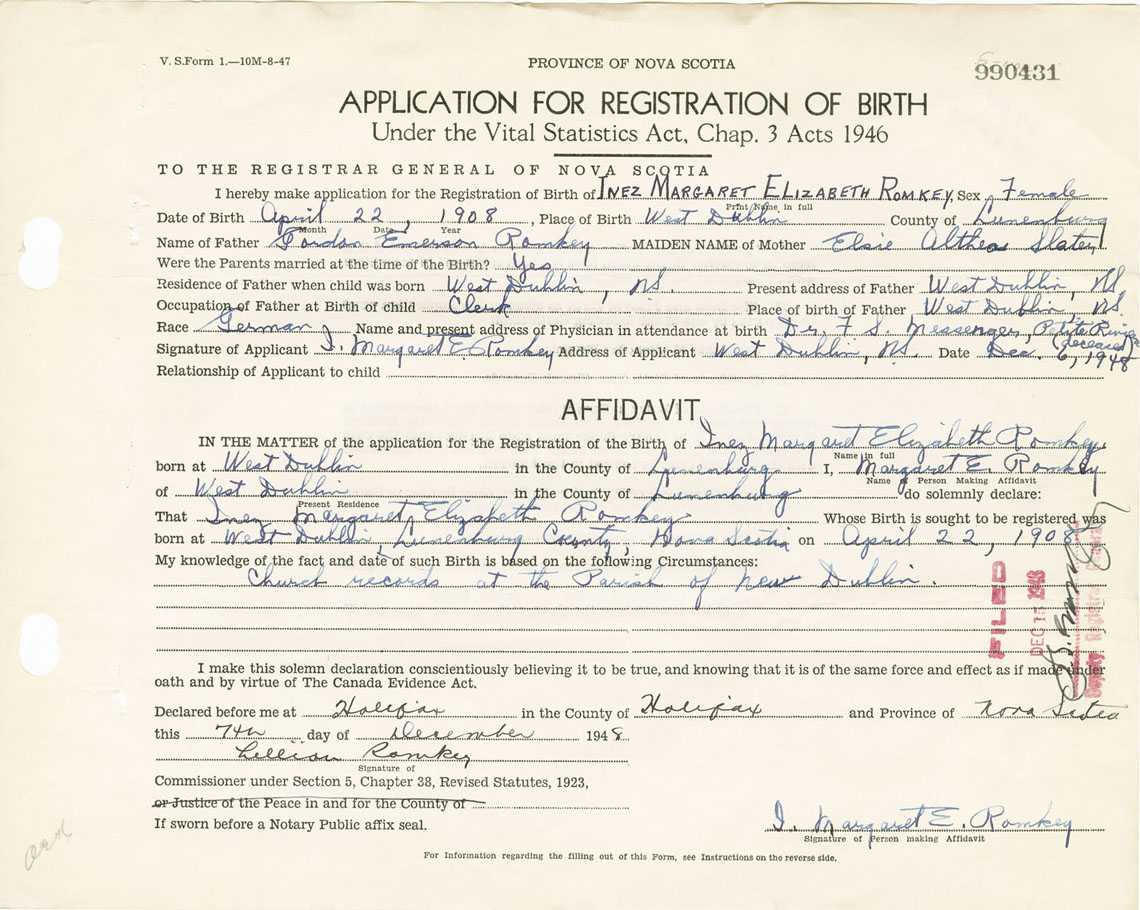 V. S.Form 1.—10M-8-47
PROVINCE OF NOVA SCOTIA
990431
APPLICATION FOR REGISTRATION OF BIRTH
Under the Vital Statistics Act, Chap. 3 Acts 1946
TO THE REGISTRAR GENERAL OF NOVA SCOTIA
I hereby make application for the Registration of Birth of INEZ MARGARET ELIZABETH ROMKEY, Sex Female
Print Name in full
Date of Birth April 22, 1908, Place of Birth West Dublin County of Lunenburg
Month Date Year
Name of Father Gordon Emerson Romkey MAIDEN NAME of Mother Elsie Althea Slater
Were the Parents married at the time of the Birth? Yes
Residence of Father when child was born West Dublin, N.S. Present address of Father West Dublin, N.S.
Occupation of Father at Birth of child Clerk Place of birth of Father West Dublin, N.S.
Race German Name and present address of Physician in attendance at birth Dr. F. S. Messenger, Petite Riviere (deceased)
Signature of Applicant I. Margaret E. Romkey Address of Applicant West Dublin, N.S. Date Dec. 6, 1948
Relationship of Applicant to child
AFFIDAVIT
IN THE MATTER of the application for the Registration of the Birth of Inez Margaret Elizabeth Romkey
Name in full
born at West Dublin in the County of Lunenburg I, Margaret E. Romkey
Name of Person Making Affidavit
of West Dublin in the County of Lunenburg do solemnly declare:
Present Residence
That Inez Margaret Elizabeth Romkey Whose Birth is sought to be registered was
born at West Dublin, Lunenburg County, Nova Scotia on April 22, 1908
My knowledge of the fact and date of such Birth is based on the following Circumstances:
Church records at the Parish of New Dublin.
FILED
DEC 15 1948
Deputy Registrar General
I make this solemn declaration conscientiously believing it to be true, and knowing that it is of the same force and effect as if made under
oath and by virtue of The Canada Evidence Act.
Declared before me at Halifax in the County of Halifax and Province of Nova Scotia
this 7th day of December 1948
Lillian Romkey
Signature of
Commissioner under Section 5, Chapter 38, Revised Statutes, 1923,
or Justice of the Peace in and for the County of
If sworn before a Notary Public affix seal.
I. Margaret E. Romkey
Signature of Person making Affidavit
For Information regarding the filling out of this Form, see Instructions on the reverse side.